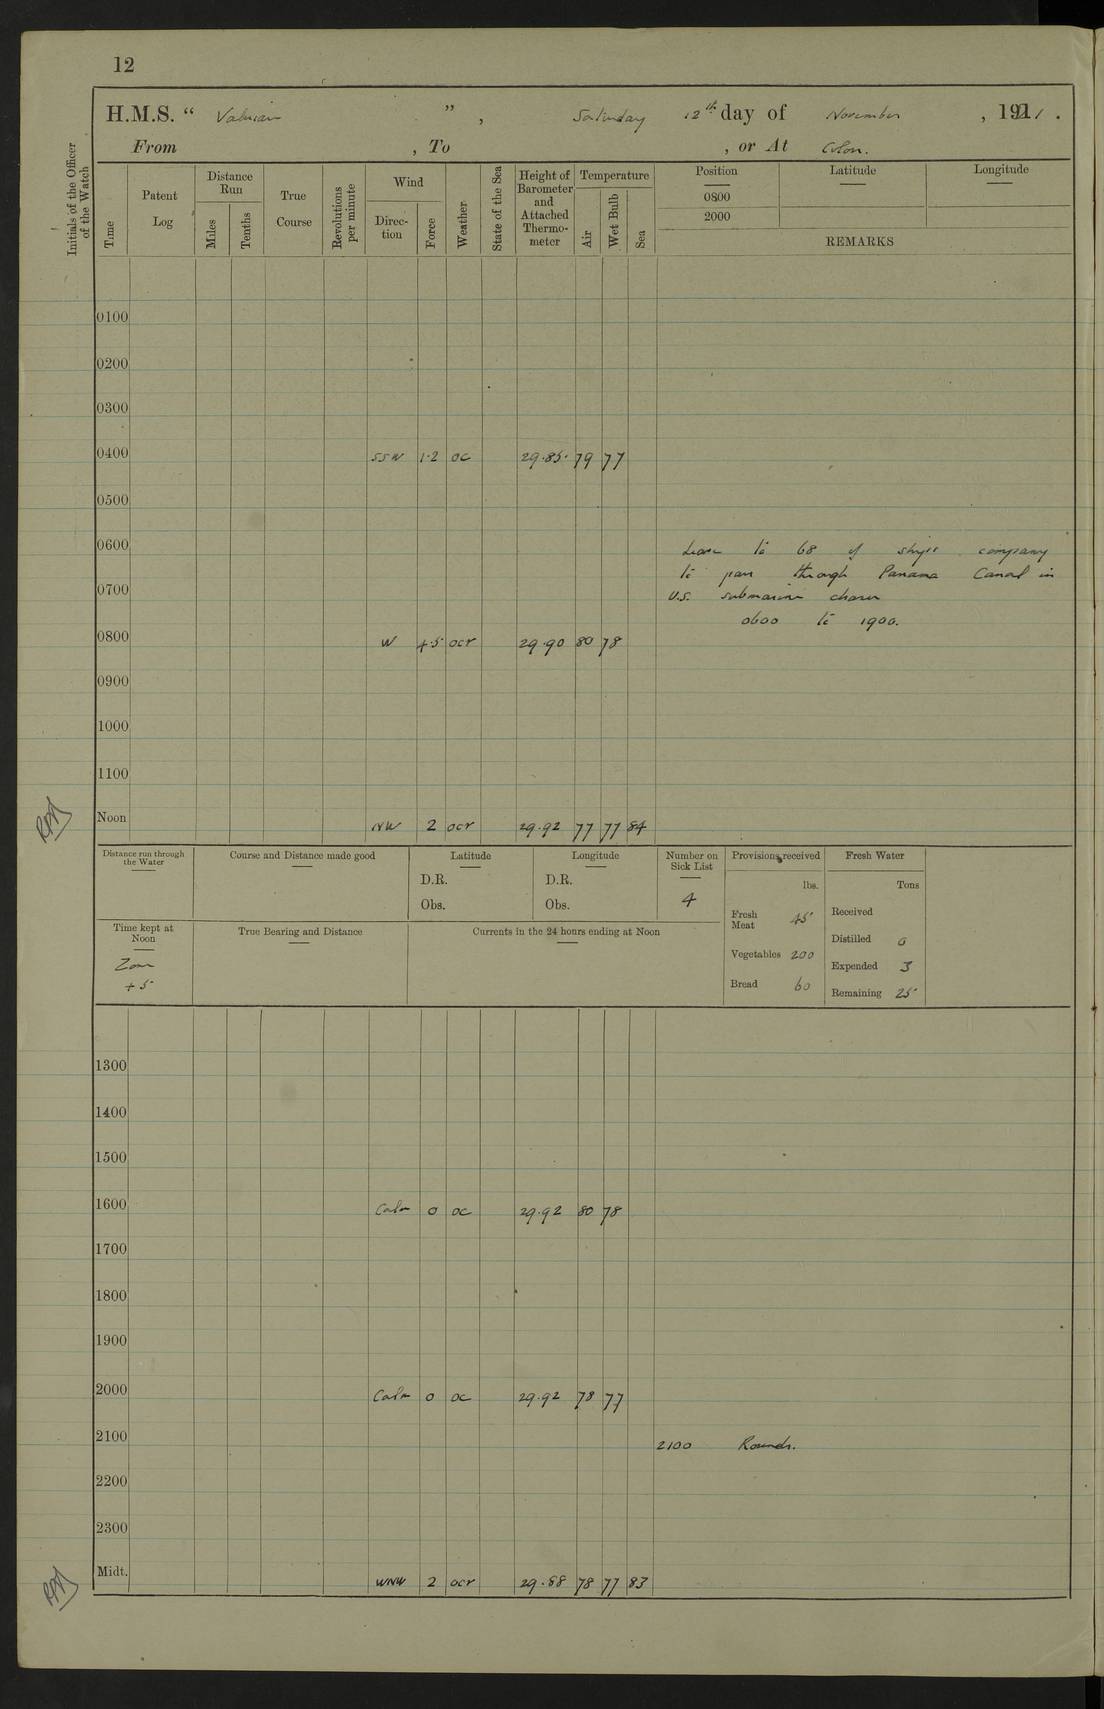 12
H.M.S. “ Valerian ” , Saturday 12th day of November , 1921 .
From , To , or At Colon.
Initials of the Officer of the Watch
Time
Patent Log
Distance Run
Miles
Tenths
True Course
Revolutions per minute
Wind
Direction
Force
Weather
State of the Sea
Height of Barometer and Attached Thermometer
Temperature
Air
Wet Bulb
Sea
Position Latitude Longitude
0800
2000
REMARKS
0100
0200
0300
0400 SSW 1.2 oc 29.85. 79 77
0500
0600 Leave to 68 of ship's company
to pass through Panama Canal in
0700
U.S. submarine chaser
0600 to 1900.
0800 W 4.5 ocr 29.90 80 78
0900
1000
1100
Noon NW 2 ocr 29.92 77 77 84
Distance run through the Water
Course and Distance made good
Latitude
D.R.
Obs.
Longitude
D.R.
Obs.
Number on Sick List
4
Provisions received
lbs.
Fresh Meat 45
Vegetables 200
Bread 60
Fresh Water
Tons
Received
Distilled 0
Expended 3
Remaining 25
Time kept at Noon
Zone
+5
True Bearing and Distance
Currents in the 24 hours ending at Noon
1300
1400
1500
1600 Calm 0 oc 29.92 80 78
1700
1800
1900
2000 Calm 0 oc 29.92 78 77
2100 2100 Rounds.
2200
2300
Midt. WNW 2 ocr 29.88 78 77 83